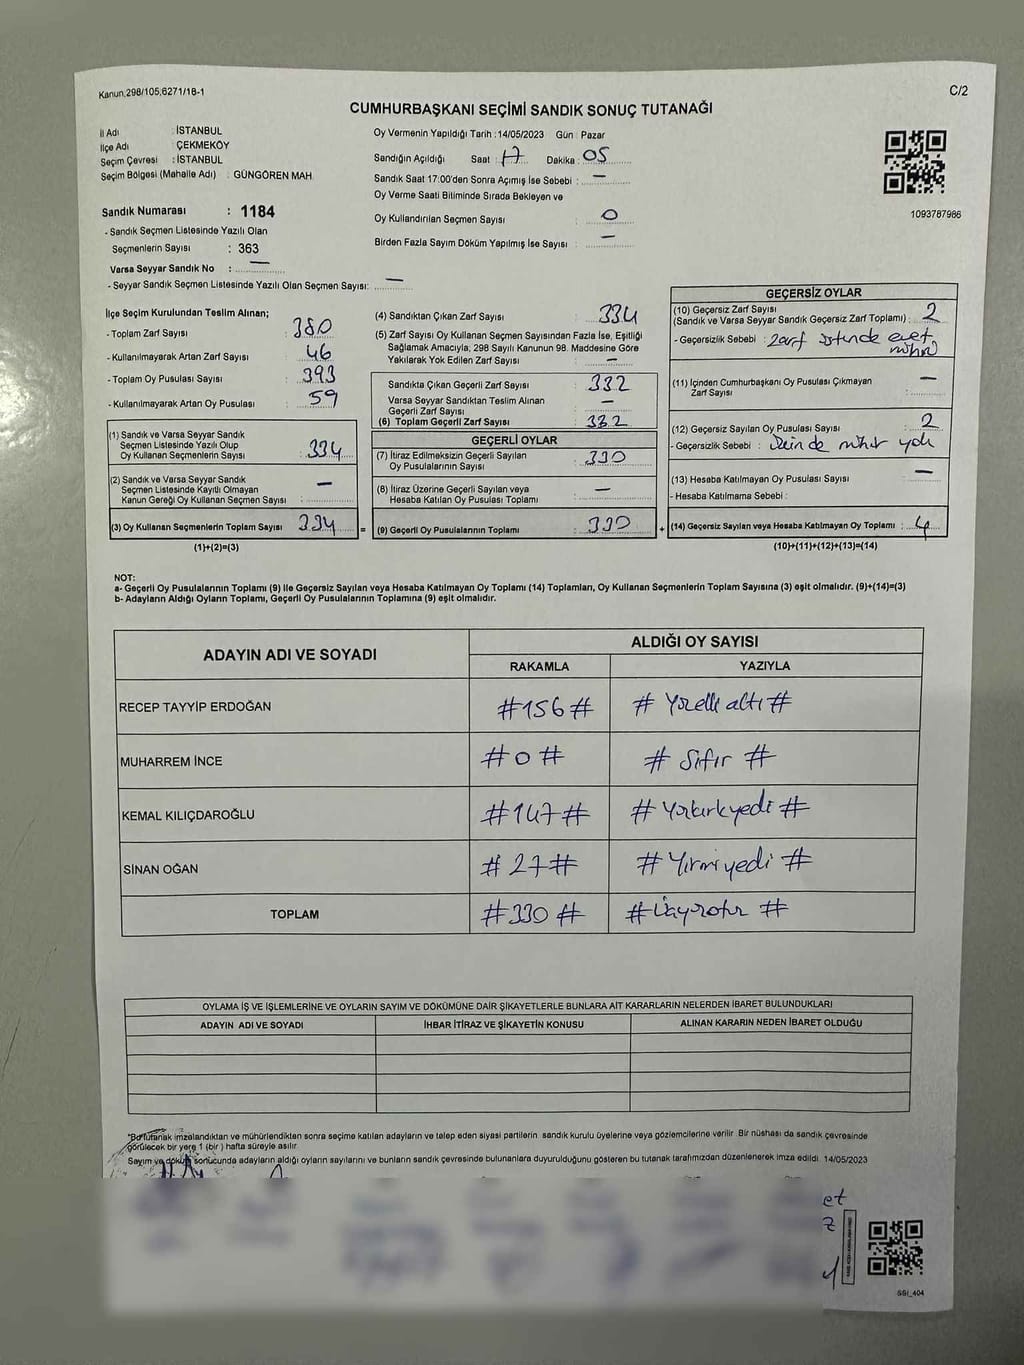 Kanun.298/105,6271/18-1
C/2
CUMHURBAŞKANI SEÇİMİ SANDIK SONUÇ TUTANAĞI
İl Adı : İSTANBUL
İlçe Adı : ÇEKMEKÖY
Seçim Çevresi : İSTANBUL
Seçim Bölgesi (Mahalle Adı) : GÜNGÖREN MAH.
Sandık Numarası : 1184
- Sandık Seçmen Listesinde Yazılı Olan
Seçmenlerin Sayısı : 363
Varsa Seyyar Sandık No : —
- Seyyar Sandık Seçmen Listesinde Yazılı Olan Seçmen Sayısı: —
Oy Vermenin Yapıldığı Tarih : 14/05/2023 Gün : Pazar
Sandığın Açıldığı Saat : 17 Dakika : 05
Sandık Saat 17:00'den Sonra Açımış İse Sebebi : —
Oy Verme Saati Bitiminde Sırada Bekleyen ve
Oy Kullandırılan Seçmen Sayısı : 0
Birden Fazla Sayım Döküm Yapılmış İse Sayısı : —
1093787986
İlçe Seçim Kurulundan Teslim Alınan;
- Toplam Zarf Sayısı : 380
- Kullanılmayarak Artan Zarf Sayısı : 46
- Toplam Oy Pusulası Sayısı : 393
- Kullanılmayarak Artan Oy Pusulası : 59
(1) Sandık ve Varsa Seyyar Sandık
Seçmen Listesinde Yazılı Olup
Oy Kullanan Seçmenlerin Sayısı : 334
(2) Sandık ve Varsa Seyyar Sandık
Seçmen Listesinde Kayıtlı Olmayan
Kanun Gereği Oy Kullanan Seçmen Sayısı : —
(3) Oy Kullanan Seçmenlerin Toplam Sayısı : 334
(1)+(2)=(3)
=
(4) Sandıktan Çıkan Zarf Sayısı : 334
(5) Zarf Sayısı Oy Kullanan Seçmen Sayısından Fazla İse, Eşitliği
Sağlamak Amacıyla, 298 Sayılı Kanunun 98. Maddesine Göre
Yakılarak Yok Edilen Zarf Sayısı : —
Sandıkta Çıkan Geçerli Zarf Sayısı : 332
Varsa Seyyar Sandıktan Teslim Alınan
Geçerli Zarf Sayısı : —
(6) Toplam Geçerli Zarf Sayısı : 332
GEÇERLİ OYLAR
(7) İtiraz Edilmeksizin Geçerli Sayılan
Oy Pusulalarının Sayısı : 330
(8) İtiraz Üzerine Geçerli Sayılan veya
Hesaba Katılan Oy Pusulası Toplamı : —
(9) Geçerli Oy Pusulalarının Toplamı : 330
+
GEÇERSİZ OYLAR
(10) Geçersiz Zarf Sayısı
(Sandık ve Varsa Seyyar Sandık Geçersiz Zarf Toplamı) : 2
- Geçersizlik Sebebi : zarf üstünde evet
mührü
(11) İçinden Cumhurbaşkanı Oy Pusulası Çıkmayan
Zarf Sayısı : —
(12) Geçersiz Sayılan Oy Pusulası Sayısı : 2
- Geçersizlik Sebebi : Üzerinde mühür yok
(13) Hesaba Katılmayan Oy Pusulası Sayısı : —
- Hesaba Katılmama Sebebi :
(14) Geçersiz Sayılan veya Hesaba Katılmayan Oy Toplamı : 4
(10)+(11)+(12)+(13)=(14)
NOT:
a- Geçerli Oy Pusulalarının Toplamı (9) ile Geçersiz Sayılan veya Hesaba Katılmayan Oy Toplamı (14) Toplamları, Oy Kullanan Seçmenlerin Toplam Sayısına (3) eşit olmalıdır. (9)+(14)=(3)
b- Adayların Aldığı Oyların Toplamı, Geçerli Oy Pusulalarının Toplamına (9) eşit olmalıdır.
ADAYIN ADI VE SOYADI
ALDIĞI OY SAYISI
RAKAMLA YAZIYLA
RECEP TAYYİP ERDOĞAN #156# # Yüzelli altı #
MUHARREM İNCE #0# # Sıfır #
KEMAL KILIÇDAROĞLU #147# # Yüzkırkyedi #
SİNAN OĞAN #27# # Yirmiyedi #
TOPLAM #330# # Üçyüzotuz #
OYLAMA İŞ VE İŞLEMLERİNE VE OYLARIN SAYIM VE DÖKÜMÜNE DAİR ŞİKAYETLERLE BUNLARA AİT KARARLARIN NELERDEN İBARET BULUNDUKLARI
ADAYIN ADI VE SOYADI İHBAR İTİRAZ VE ŞİKAYETİN KONUSU ALINAN KARARIN NEDEN İBARET OLDUĞU
*Bu tutanak imzalandıktan ve mühürlendikten sonra seçime katılan adayların ve talep eden siyasi partilerin sandık kurulu üyelerine veya gözlemcilerine verilir. Bir nüshası da sandık çevresinde
görülecek bir yere 1 (bir) hafta süreyle asılır.
Sayım ve döküm sonucunda adayların aldığı oyların sayılarını ve bunların sandık çevresinde bulunanlara duyurulduğunu gösteren bu tutanak tarafımızdan düzenlenerek imza edildi. 14/05/2023
et
z
SSI_404